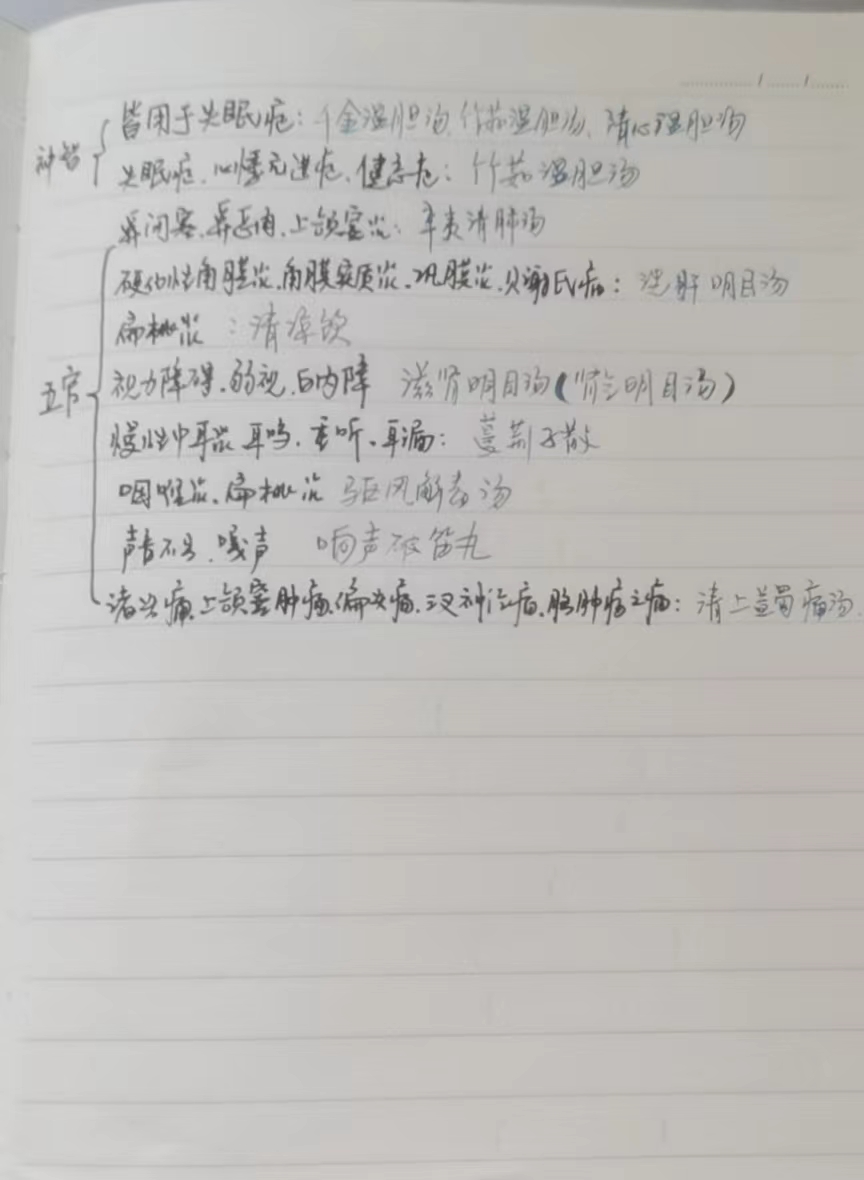 神智
皆用于失眠症：千金温胆汤、竹茹温胆汤、清心温胆汤
失眠症、心悸亢进症、健忘症：竹茹温胆汤
五官
鼻闭塞、鼻息肉、上颌窦炎：辛夷清肺汤
硬化性角膜炎、角膜实质炎、巩膜炎、贝谢氏病：洗肝明目汤
扁桃炎：清凉饮
视力障碍、弱视、白内障 滋肾明目汤(肾气明目汤)
慢性中耳炎 耳鸣、重听、耳漏：蔓荆子散
咽喉炎、扁桃炎 驱风解毒汤
声音不出、嗄声 响声破笛丸
诸头痛、上颌窦肿痛、偏头痛、三叉神经痛、脑肿疡之痛：清上蠲痛汤